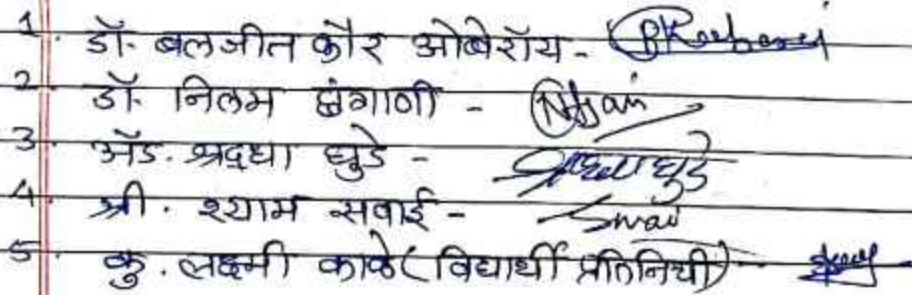 1. डॉ. बलजीत कौर ओबेरॉय -
2. डॉ. निलम छंगाणी -
3. अॅड. श्रद्धा घुडे -
4. श्री. श्याम सवाई - Swai
5. कु. लक्ष्मी काळे (विद्यार्थी प्रतिनिधी) -